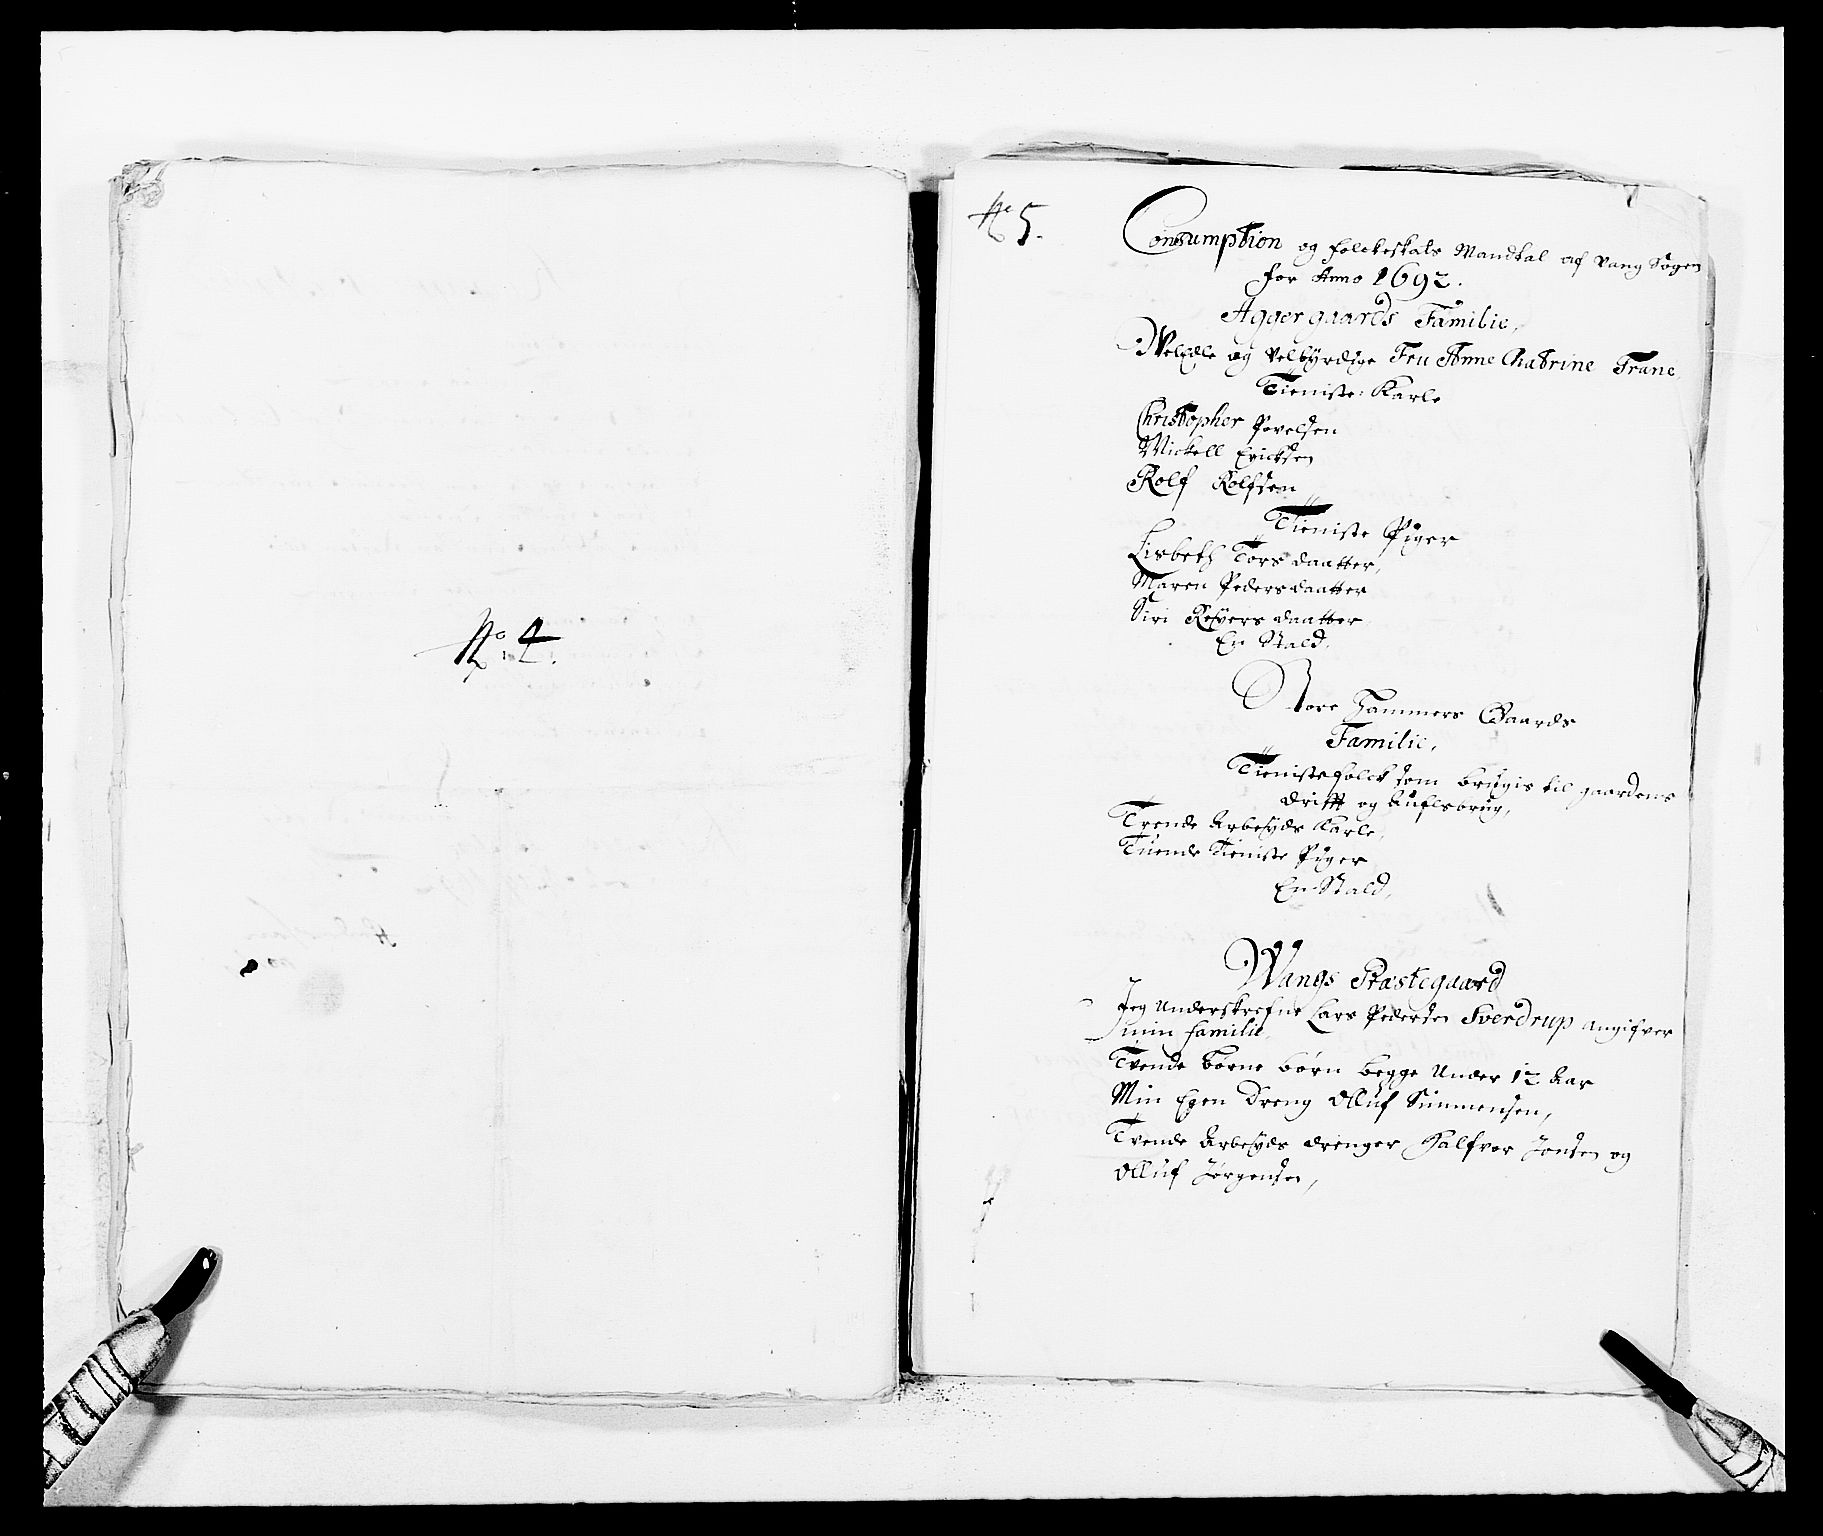 No 4.
No 5.
Consumption og folckeskats Mandtal af Vang Sogen
for Anno 1692.
Aggergaards Familie,
Welædle og Velbyrdige Fru Anne Chatrine Trane,
Tieniste Karle
Christopher Povelsen
Mickell Ericksen
Rolf Rolfsen
Tieniste Piger
Lisbeth Tors daatter,
Maren Pedersdaatter
Siri Reyers daatter
En Stald.
Store Hammers Gaards
Familie,
Tienistefolck som brugis til gaardens
drifft og Auflsbrug,
Trende Arbeyds Karle,
Tuende tieniste Piger
En Stald,
Wangs Præstegaard
Jeg Underskrefne Lars Pedersen Sverdrup angifver
min familie.
Tvende børne børn begge Under 12 Aar
Min Egen Dreng Olluf Simmensen,
Tvende Arbeyds drenger Halfvor Jonsen og
Olluf Jørgensen,